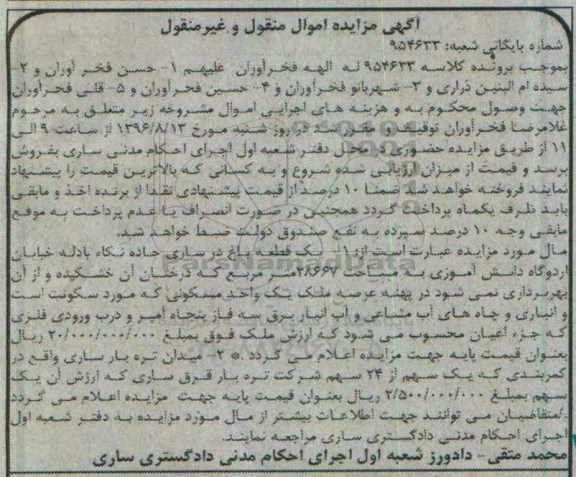 آگهی مزایده اموال منقول و غیرمنقول
شماره بایگانی شعبه: ۹۵۴۶۳۳
بموجب پرونده کلاسه ۹۵۴۶۳۳ له الهه فخرآوران علیهم ۱- حسن فخر آوران و ۲-
سیده ام البنین ذراری و ۳- شهربانو فخرآوران و ۴- حسین فخرآوران و ۵- قلی فخرآوران
جهت وصول محکوم به و هزینه های اجرایی اموال مشروحه زیر متعلق به مرحوم
غلامرضا فخرآوران توقیف و مقرر شد در روز شنبه مورخ ۱۳۹۶/۸/۱۳ از ساعت ۹ الی
۱۱ از طریق مزایده حضوری در محل دفتر شعبه اول اجرای احکام مدنی ساری بفروش
برسد و قیمت از میزان ارزیابی شده شروع و به کسانی که بالاترین قیمت را پیشنهاد
نمایند فروخته خواهد شد. ضمنا ۱۰ درصد از قیمت پیشنهادی نقدا از برنده اخذ و مابقی
باید ظرف یکماه پرداخت گردد همچنین در صورت انصراف یا عدم پرداخت به موقع
مابقی وجه ۱۰ درصد سپرده به نفع صندوق دولت ضبط خواهد شد.
مال مورد مزایده عبارت است از: ۱- یک قطعه باغ در ساری جاده نکاء بادله خیابان
اردوگاه دانش آموزی به مساحت ۲۸۶۶۷ مترمربع که درختان آن خشکیده و از آن
بهربرداری نمی شود در پهنه عرصه ملک یک واحد مسکونی که مورد سکونت است
و انباری و چاه های آب مشاعی و آب انبار برق سه فاز پنجاه آمپر و درب ورودی فلزی
که جزء اعیان محسوب می شود که ارزش ملک فوق بمبلغ ۲۰/۰۰۰/۰۰۰/۰۰۰ ریال
بعنوان قیمت پایه جهت مزایده اعلام می گردد.* ۲- میدان تره بار ساری واقع در
کمربندی که یک سهم از ۲۴ سهم شرکت تره بار قرق ساری که ارزش آن یک
سهم بمبلغ ۲/۵۰۰/۰۰۰/۰۰۰ ریال بعنوان قیمت پایه جهت مزایده اعلام می گردد
./متقاضیان می توانند جهت اطلاعات بیشتر از مال مورد مزایده به دفتر شعبه اول
اجرای احکام مدنی دادگستری ساری مراجعه نمایند.
محمد متقی- دادورز شعبه اول اجرای احکام مدنی دادگستری ساری
ParsNamadData